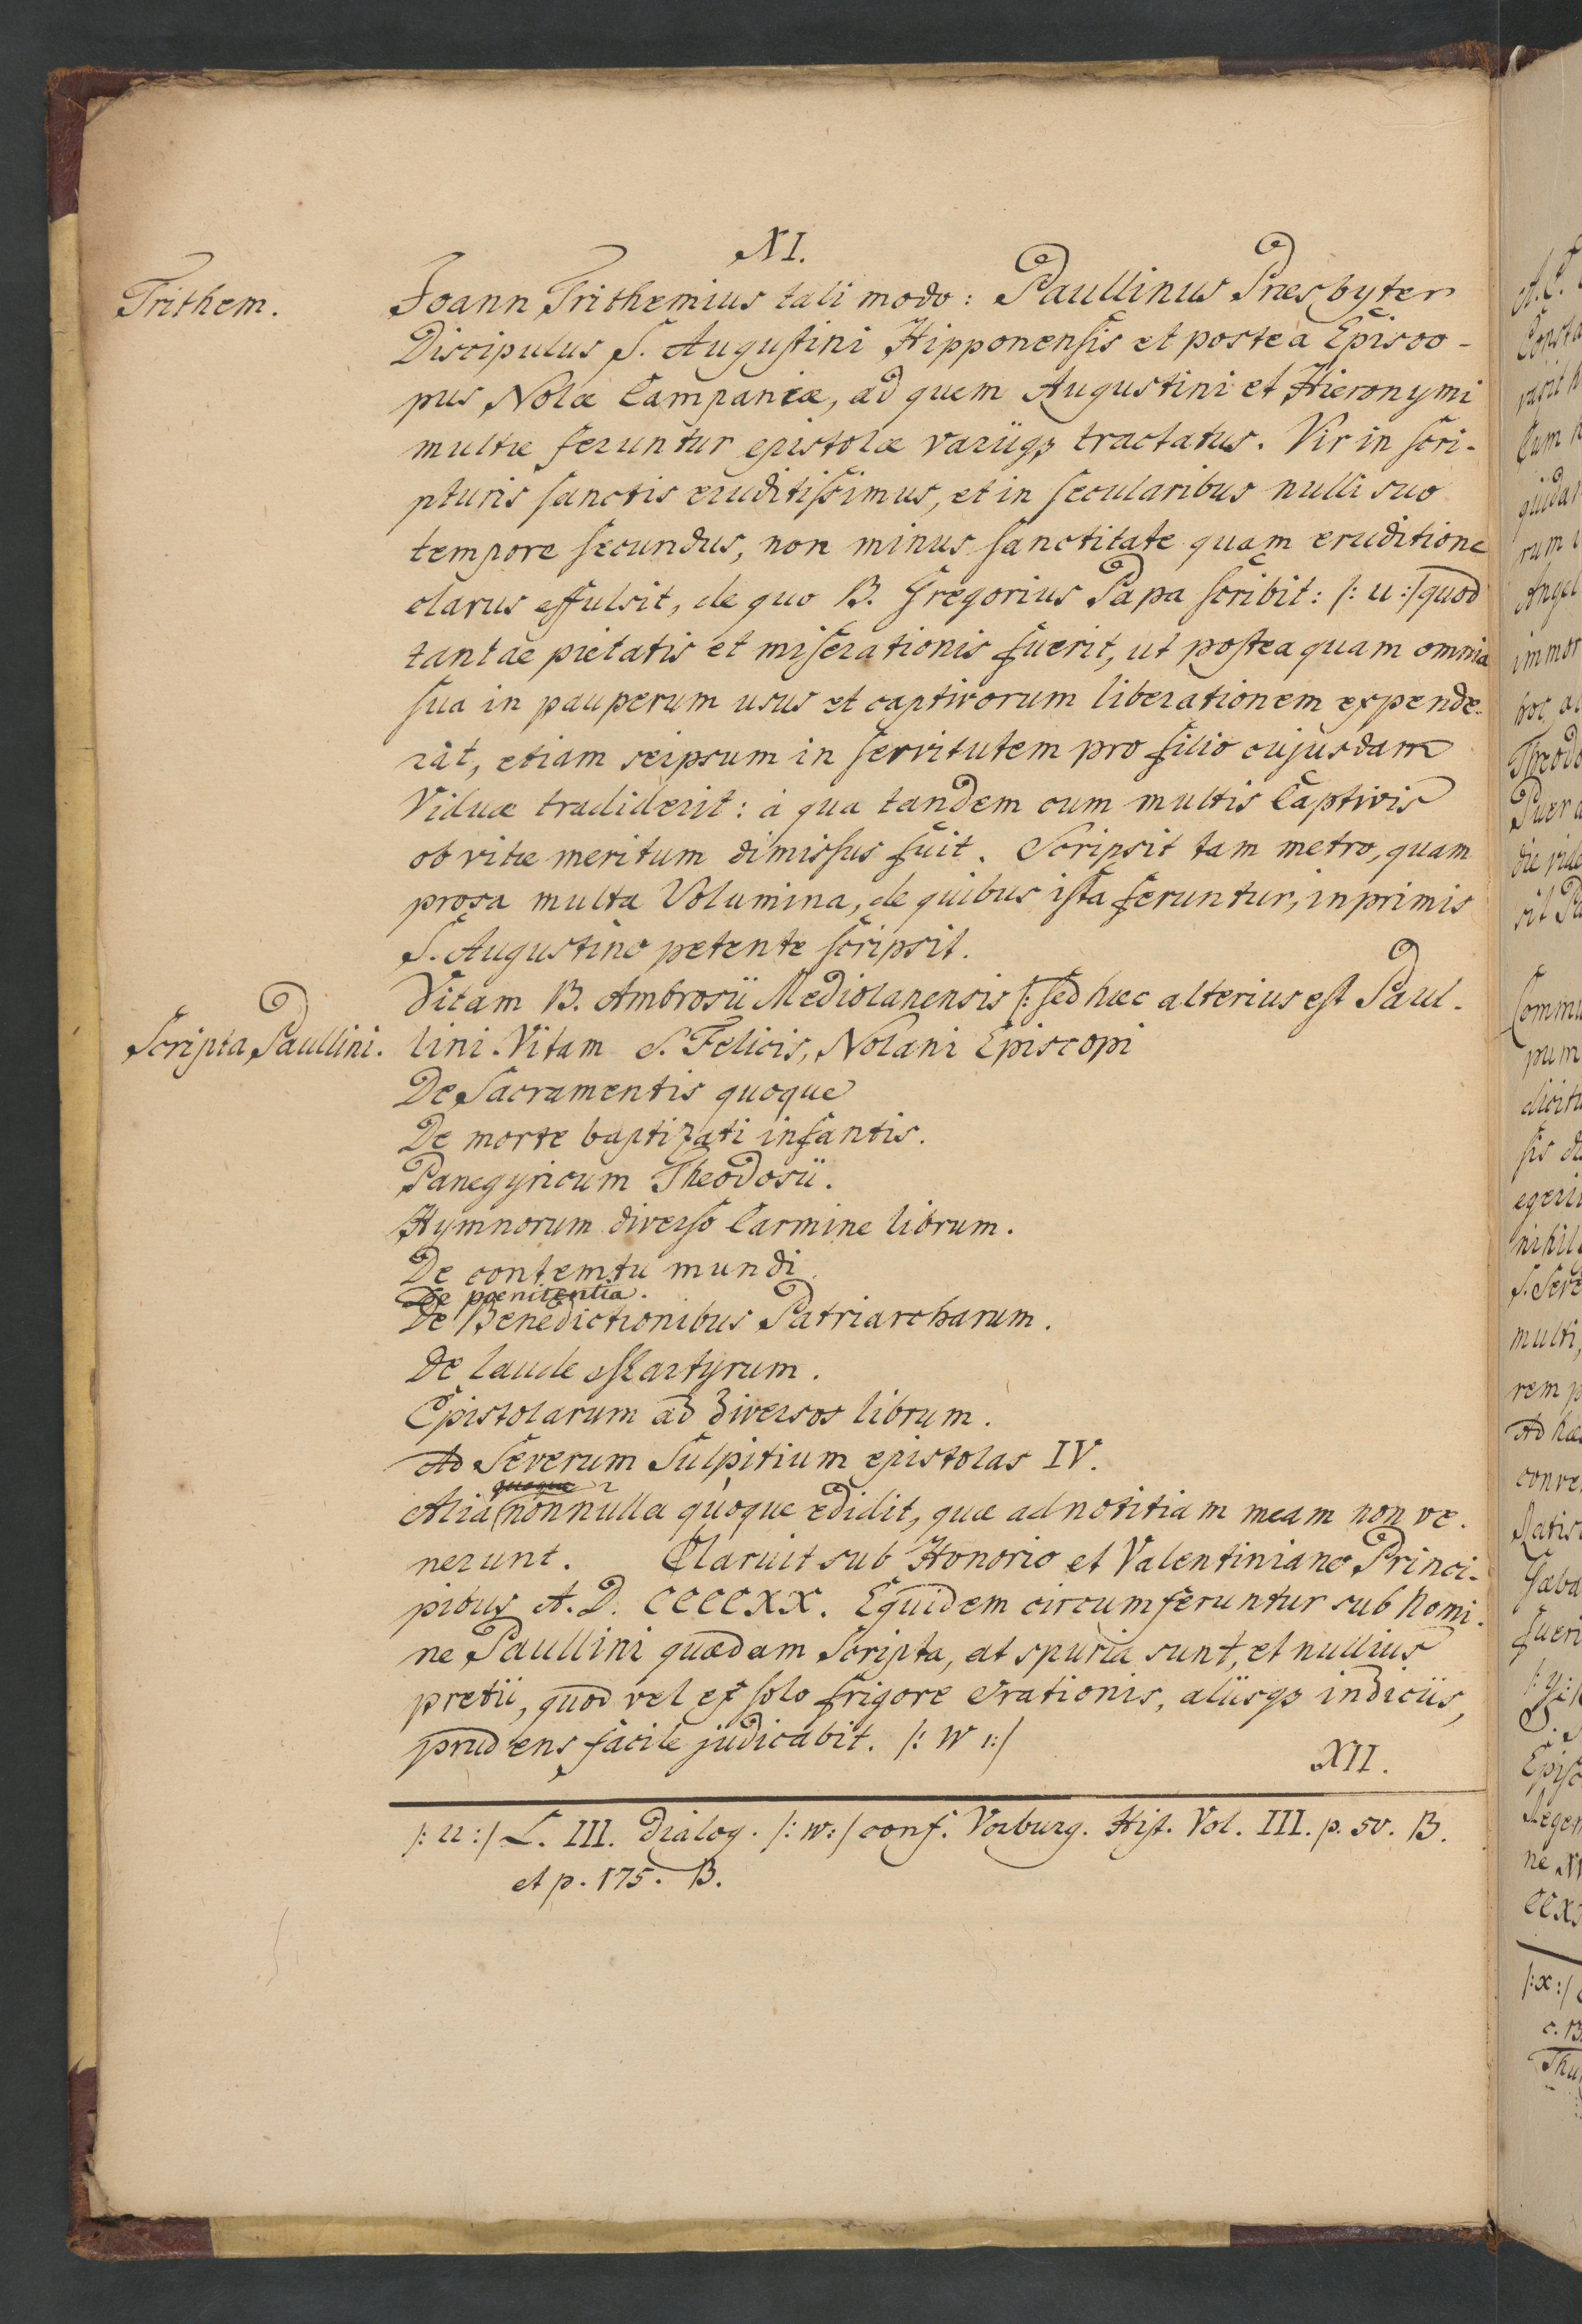 XI.
Trithem.
Joann Trithemius tali modo: Paullinus Presbyter
Discipulus S. Augustini Hipponensis et postea Episco-
pus Nolæ Campaniæ, ad quem Augustini et Hieronymi
multæ feruntur epistolæ variiqȝ tractatus. Vir in scri-
pturis sanctis eruditissimus, et in secularibus nulli suo
tempore secundus, non minus sanctitate quam eruditione
clarus effulsit, de quo B. Gregorius Papa scribit: /: u :/ quod
tantae pietatis et miserationis fuerit, ut postea quam omnia
sua in pauperum usus et captivorum liberationem expende-
rat, etiam seipsum in servitutem pro filio cujusdam
Viduæ tradiderit: à qua tandem cum multis Captivis
ob vitæ meritum dimissus fuit. Scripsit tam metro, quam
prosa multa Volumina, de quibus ista feruntur, inprimis
S. Augustino petente scripsit.
Vitam B. Ambrosii Mediolanensis /: sed hæc alterius est Paul-
Scripta Paullini.
lini. Vitam S. Felicis, Nolani Episcopi
De Sacramentis quoque
De morte baptizati infantis.
Panegyricum Theodosii.
Hymnorum diverso Carmine librum.
De contemtu mundi
De poenitentia.
De Benedictionibus Patriarcharum.
De laude Martyrum.
Epistolarum ad diversos librum.
Ad Severum Sulpitium epistolas IV.
quoque
Alia nonnulla quoque edidit, quæ ad notitiam meam non ve-
nerunt. Claruit sub Honorio et Valentiniano Princi-
pibus A. D. CCCCXX. Equidem circumferuntur sub Nomi-
ne Paullini quædam Scripta, at spuria sunt, et nullius
pretii, quod vel ex solo frigore Orationis, aliisqȝ indiciis,
prudens facile judicabit. /: w :/
XII.
/: u :/ L. III. Dialog. /: w :/ conf. Vorburg. Hist. Vol. III. p. 50. B.
et p. 175. B.